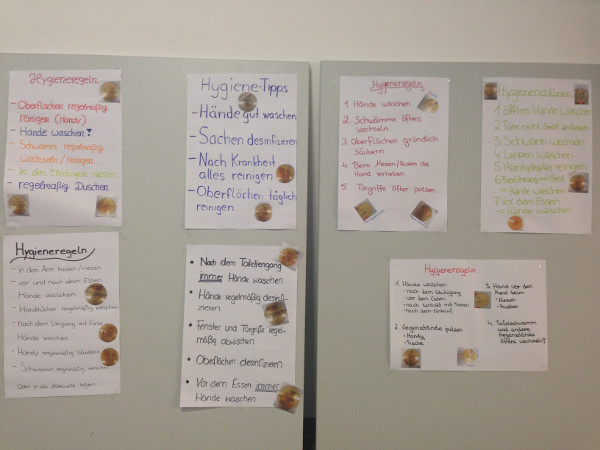 Hygieneregeln
- Oberflächen regelmäßig
reinigen (Handy)
- Hände waschen!
- Schwamm regelmäßig
wechseln/reinigen
- In den Ellenbogen niesen
- regelmäßig Duschen
Hygiene-Tipps
- Hände gut waschen
- Sachen desinfizieren
- Nach Krankheit
alles reinigen
- Oberflächen täglich
reinigen
Hygieneregeln
1 Hände waschen
2 Schwämme öfters
wechseln
3 Oberflächen gründlich
säubern
4 Beim Niesen/Husten die
Hand vorhalten
5 Türgriffe öfter putzen
Hygienerichtlinien
1 öfters Hände waschen
2 Türe nicht direkt anfassen
3 Schwamm wechseln
4 Lappen waschen
5 Handy/Display reinigen
6 Berührung mit Geld
→ Hände waschen
7 Vor dem Essen
→ Hände waschen
Hygieneregeln
- in den Arm husten/niesen
- vor und nach dem Essen
Hände waschen
- Handtücher regelmäßig waschen
- nach dem Umgang mit Geld
Hände waschen
- Handy regelmäßig säubern
- Schwamm regelmäßig waschen
Oder in die Mikrowelle legen
• Nach dem Toilettengang
immer Hände waschen
• Hände regelmäßig desinfi-
zieren
• Fenster und Türgriffe regel-
mäßig abwischen
• Oberflächen desinfizieren
• Vor dem Essen immer
Hände waschen
Hygieneregeln
1. Hände waschen
- nach dem Stuhlgang
- vor dem Essen
- nach Kontakt mit Tieren
- nach dem Einkauf
2. Gegenstände putzen
- Handy
- Tische
3. Hand vor den
Mund beim
- Niesen
- Husten
4. Tafelschwamm
und andere
Gegenstände
öfters wechseln!